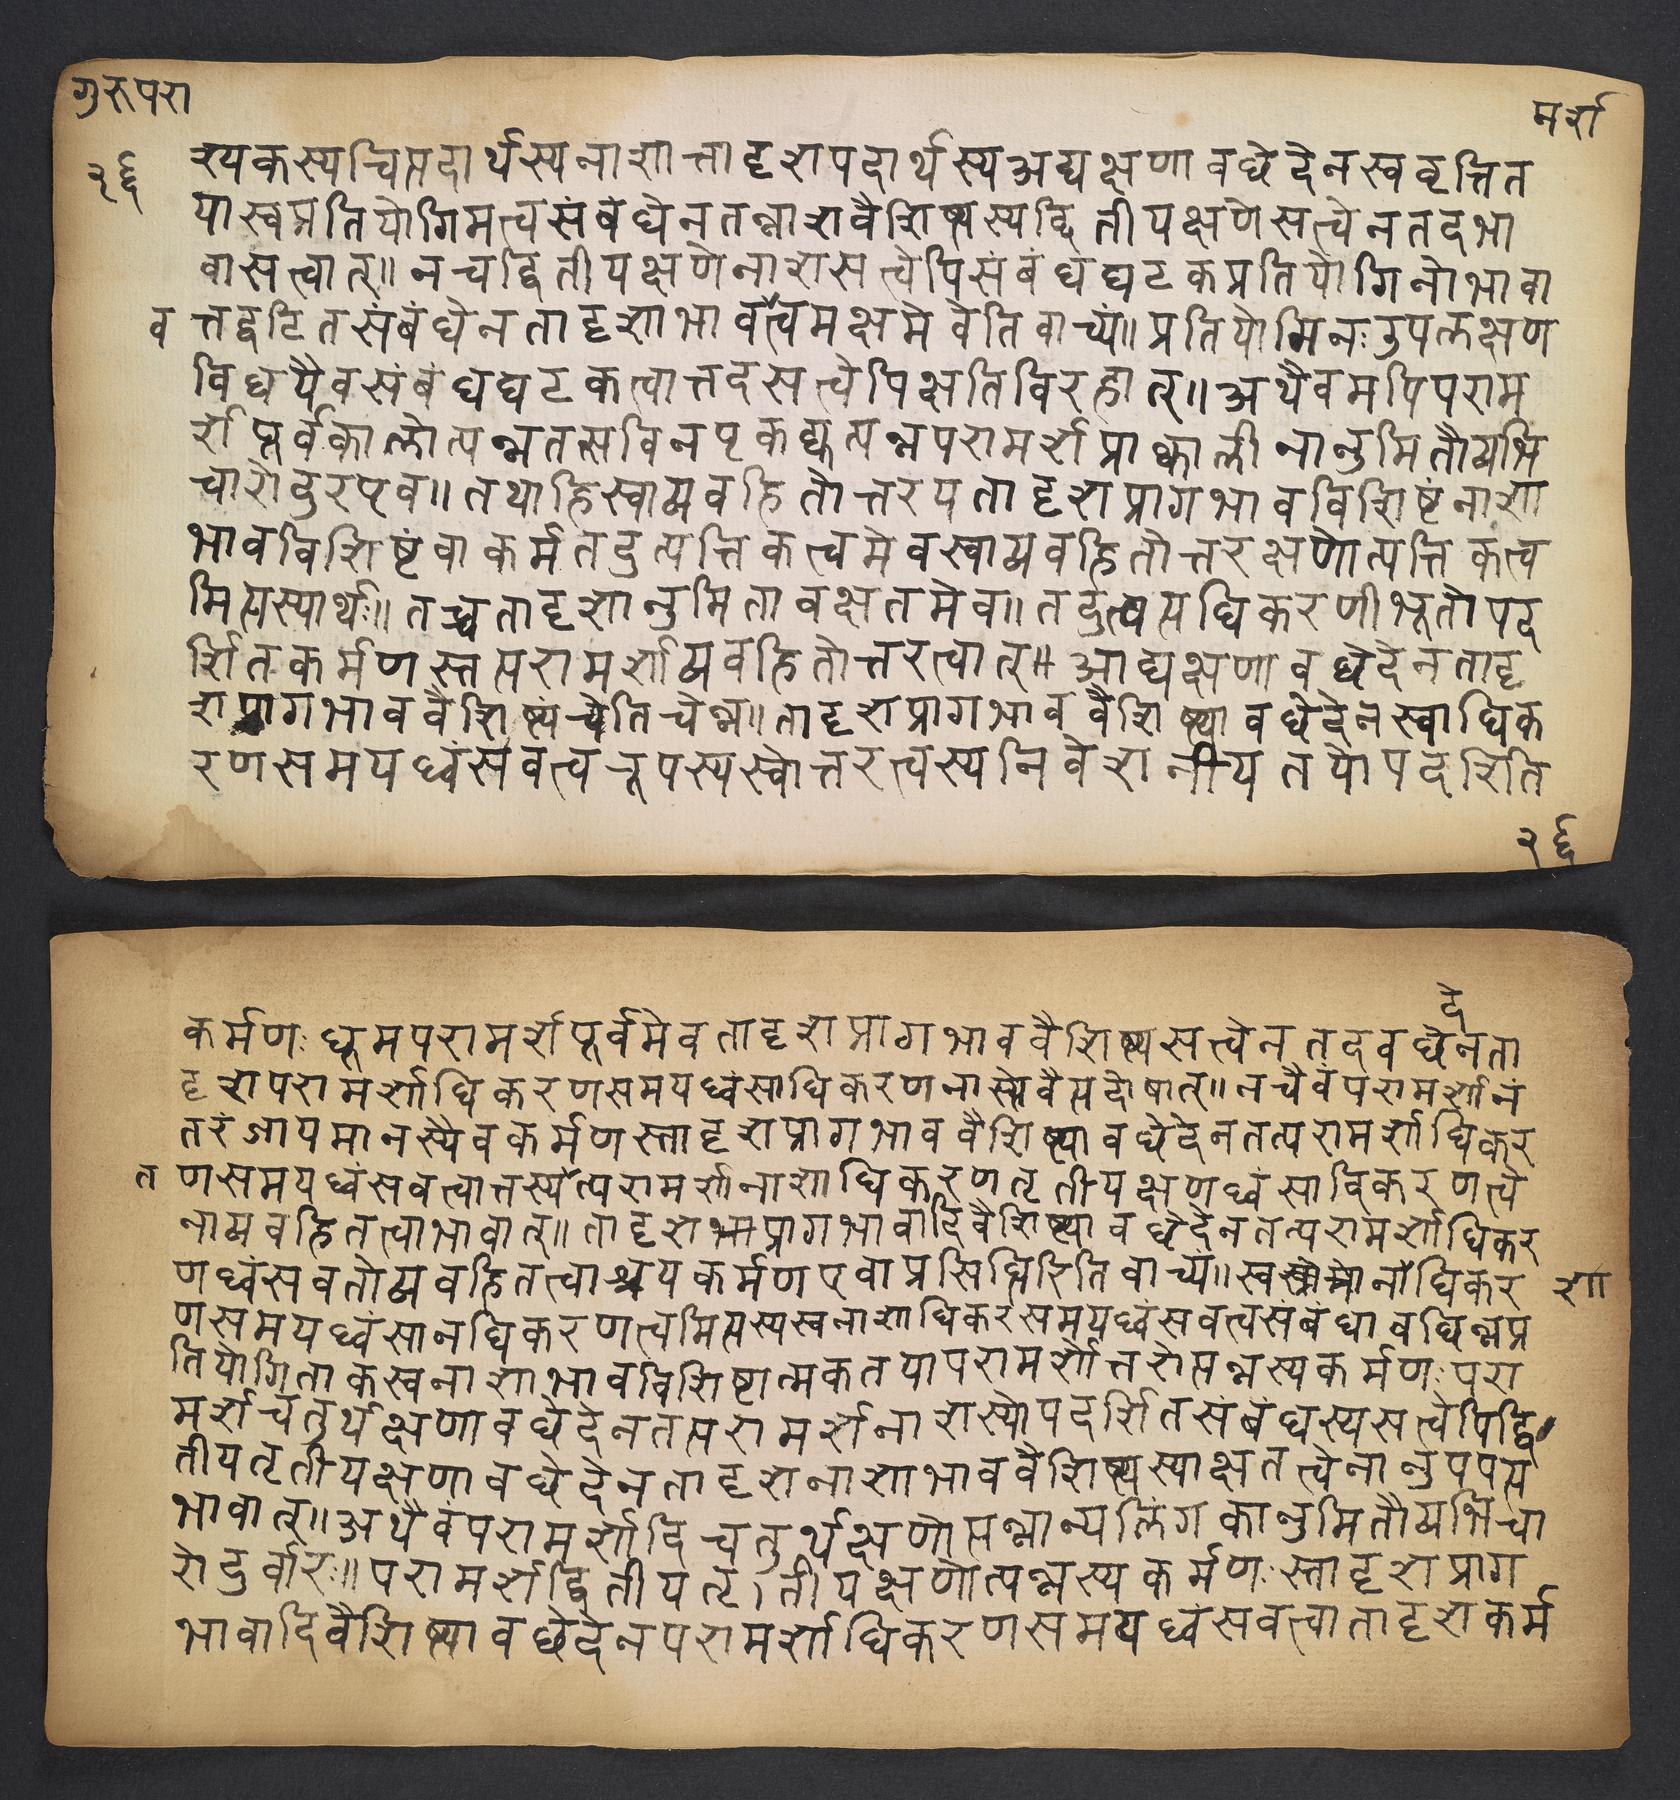 गुरूपरा
मर्श
२६
रयकस्यचित्पदार्थस्यनाशात्तादृशपदार्थस्यअद्यक्षणावछेदेनस्ववृत्तित
यास्वप्रतियोगिमत्त्वसंबंधेनतन्नाशवैशिष्ट्यस्यद्वितीयक्षणेसत्त्वेनतदभा
वासत्त्वात्॥नचद्वितीयक्षणेनाशसत्त्वेपिसंबंधघटकप्रतियोगिनोभावा
व
त्तद्घटितसंबंधेनतादृशाभाववत्त्वमक्षमेवेतिवाच्यं॥प्रतियोगिनःउपलक्षण
विधयैवसंबंधघटकत्वात्तदसत्त्वेपिक्षतिविरहात्॥अथैवमपिपराम
र्शपूर्वकालोत्पन्नतत्सविनपृकद्युत्पन्नपरामर्शप्राक्कालीनानुमितौव्यभि
चारोदुरएव॥तथाहिस्वाव्यवहितोत्तरयतादृशप्रागभावविशिष्टंनाशा
भावविशिष्टंवाकर्मतदुत्पत्तिकत्त्वमेवस्वाव्यवहितोत्तरक्षणोत्पत्तिकत्त्व
मित्यस्यार्थः॥तच्चतादृशानुमितावक्षतमेव॥तदुत्पत्यधिकरणीभूतोपद
र्शितकर्मणस्तत्परामर्शाव्यवहितोत्तरत्वात्॥आद्यक्षणावछेदेनतादृ
शप्रागभाववैशिष्ट्यंचेतिचेन्न॥तादृशप्रागभाववैशिष्ट्यावछेदेनस्वाधिक
रणसमयध्वंसवत्त्वरूपस्यस्वोत्तरत्त्वस्यनिवेशनीयतयोपदर्शिति
२६
दे
कर्मणःधूमपरामर्शपूर्वमेवतादृशप्रागभाववैशिष्ट्यसत्त्वेनतदवछेनता
दृशपरामर्शाधिकरणसमयध्वंसाधिकरणनास्त्येवैत्यदोषात्॥नचैवंपरामर्शानं
तरंजायमानस्यैवकर्मणस्तादृशप्रागभाववैशिष्ट्यावछेदेनतत्परामर्शाधिकर
त
णसमयध्वंसवत्त्वात्तस्यत्परामर्शनाशाधिकरणतृतीयक्षणध्वंसाधिकरणत्त्वे
नाव्यवहितत्त्वाभावात्॥तादृशप्रागभावादिवैशिष्ट्यावछेदेनतत्परामर्शाधिकर
णध्वंसवतोव्यवहितत्त्वाश्रयकर्मणएवाप्रसिद्धिरितिवाच्यं॥स्वनाधिकर
शा
णसमयध्वंसानधिकरणत्त्वमित्यस्यस्वनाशाधिकरसमयध्वंसवत्त्वसंबंधावछिन्नप्र
तियोगिताकस्वनाशाभावविशिष्टात्मकतयापरामर्शोत्तरोत्पन्नस्यकर्मणःपरा
मर्शचतुर्थक्षणावछेदेनतत्परामर्शनाशस्योपदर्शितसंबंधस्यसत्त्वेपिद्वि
तीयतृतीयक्षणावछेदेनतादृशनाशाभाववैशिष्ट्यस्याक्षतत्त्वेनानुपपत्य
भावात्॥अथैवंपरामर्शादिचतुर्थक्षणोत्पन्नान्यलिंगकानुमितौव्यभिचा
रोदुर्वारः॥परामर्शद्वितीयतृ।तीयक्षणोत्पन्नस्यकर्मणःस्तादृशप्राग
भावादिवैशिष्ट्यावछेदेनपरामर्शाधिकरणसमयध्वंसवत्त्वातादृशकर्म